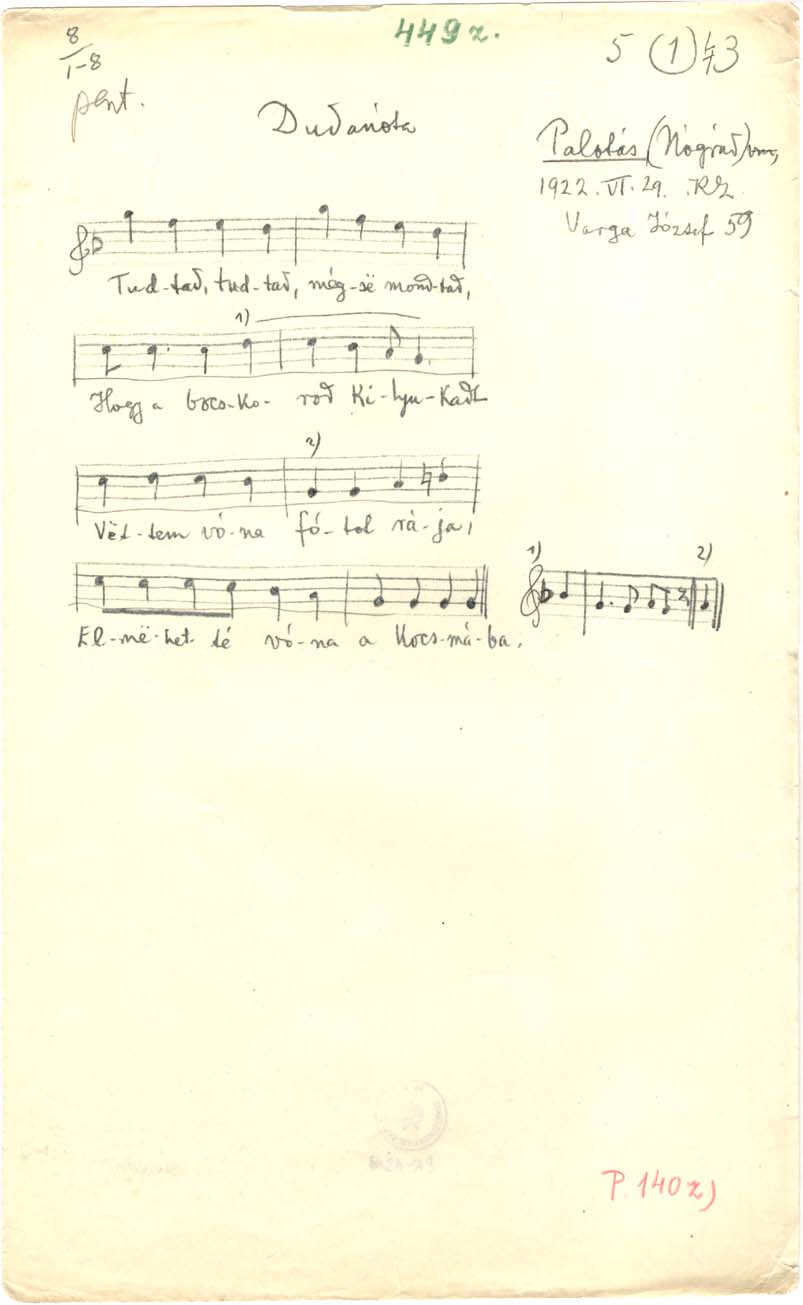 8
1-8
449z.
5 (1) b3
pent.
Dudanóta
Palotás (Nógrád) vm,
1922. VI. 29. RL
Varga József 59
Tud-tad, tud-tad, még-së mond-tad,
1)
Hogy a bocs-ko- rod Ki-lyu-kadt
2)
Vët-tem vó-na fó-tot rá-ja,
1) 2)
El-më-het-té vó-na a Kocs-má-ba.
P. 140z)